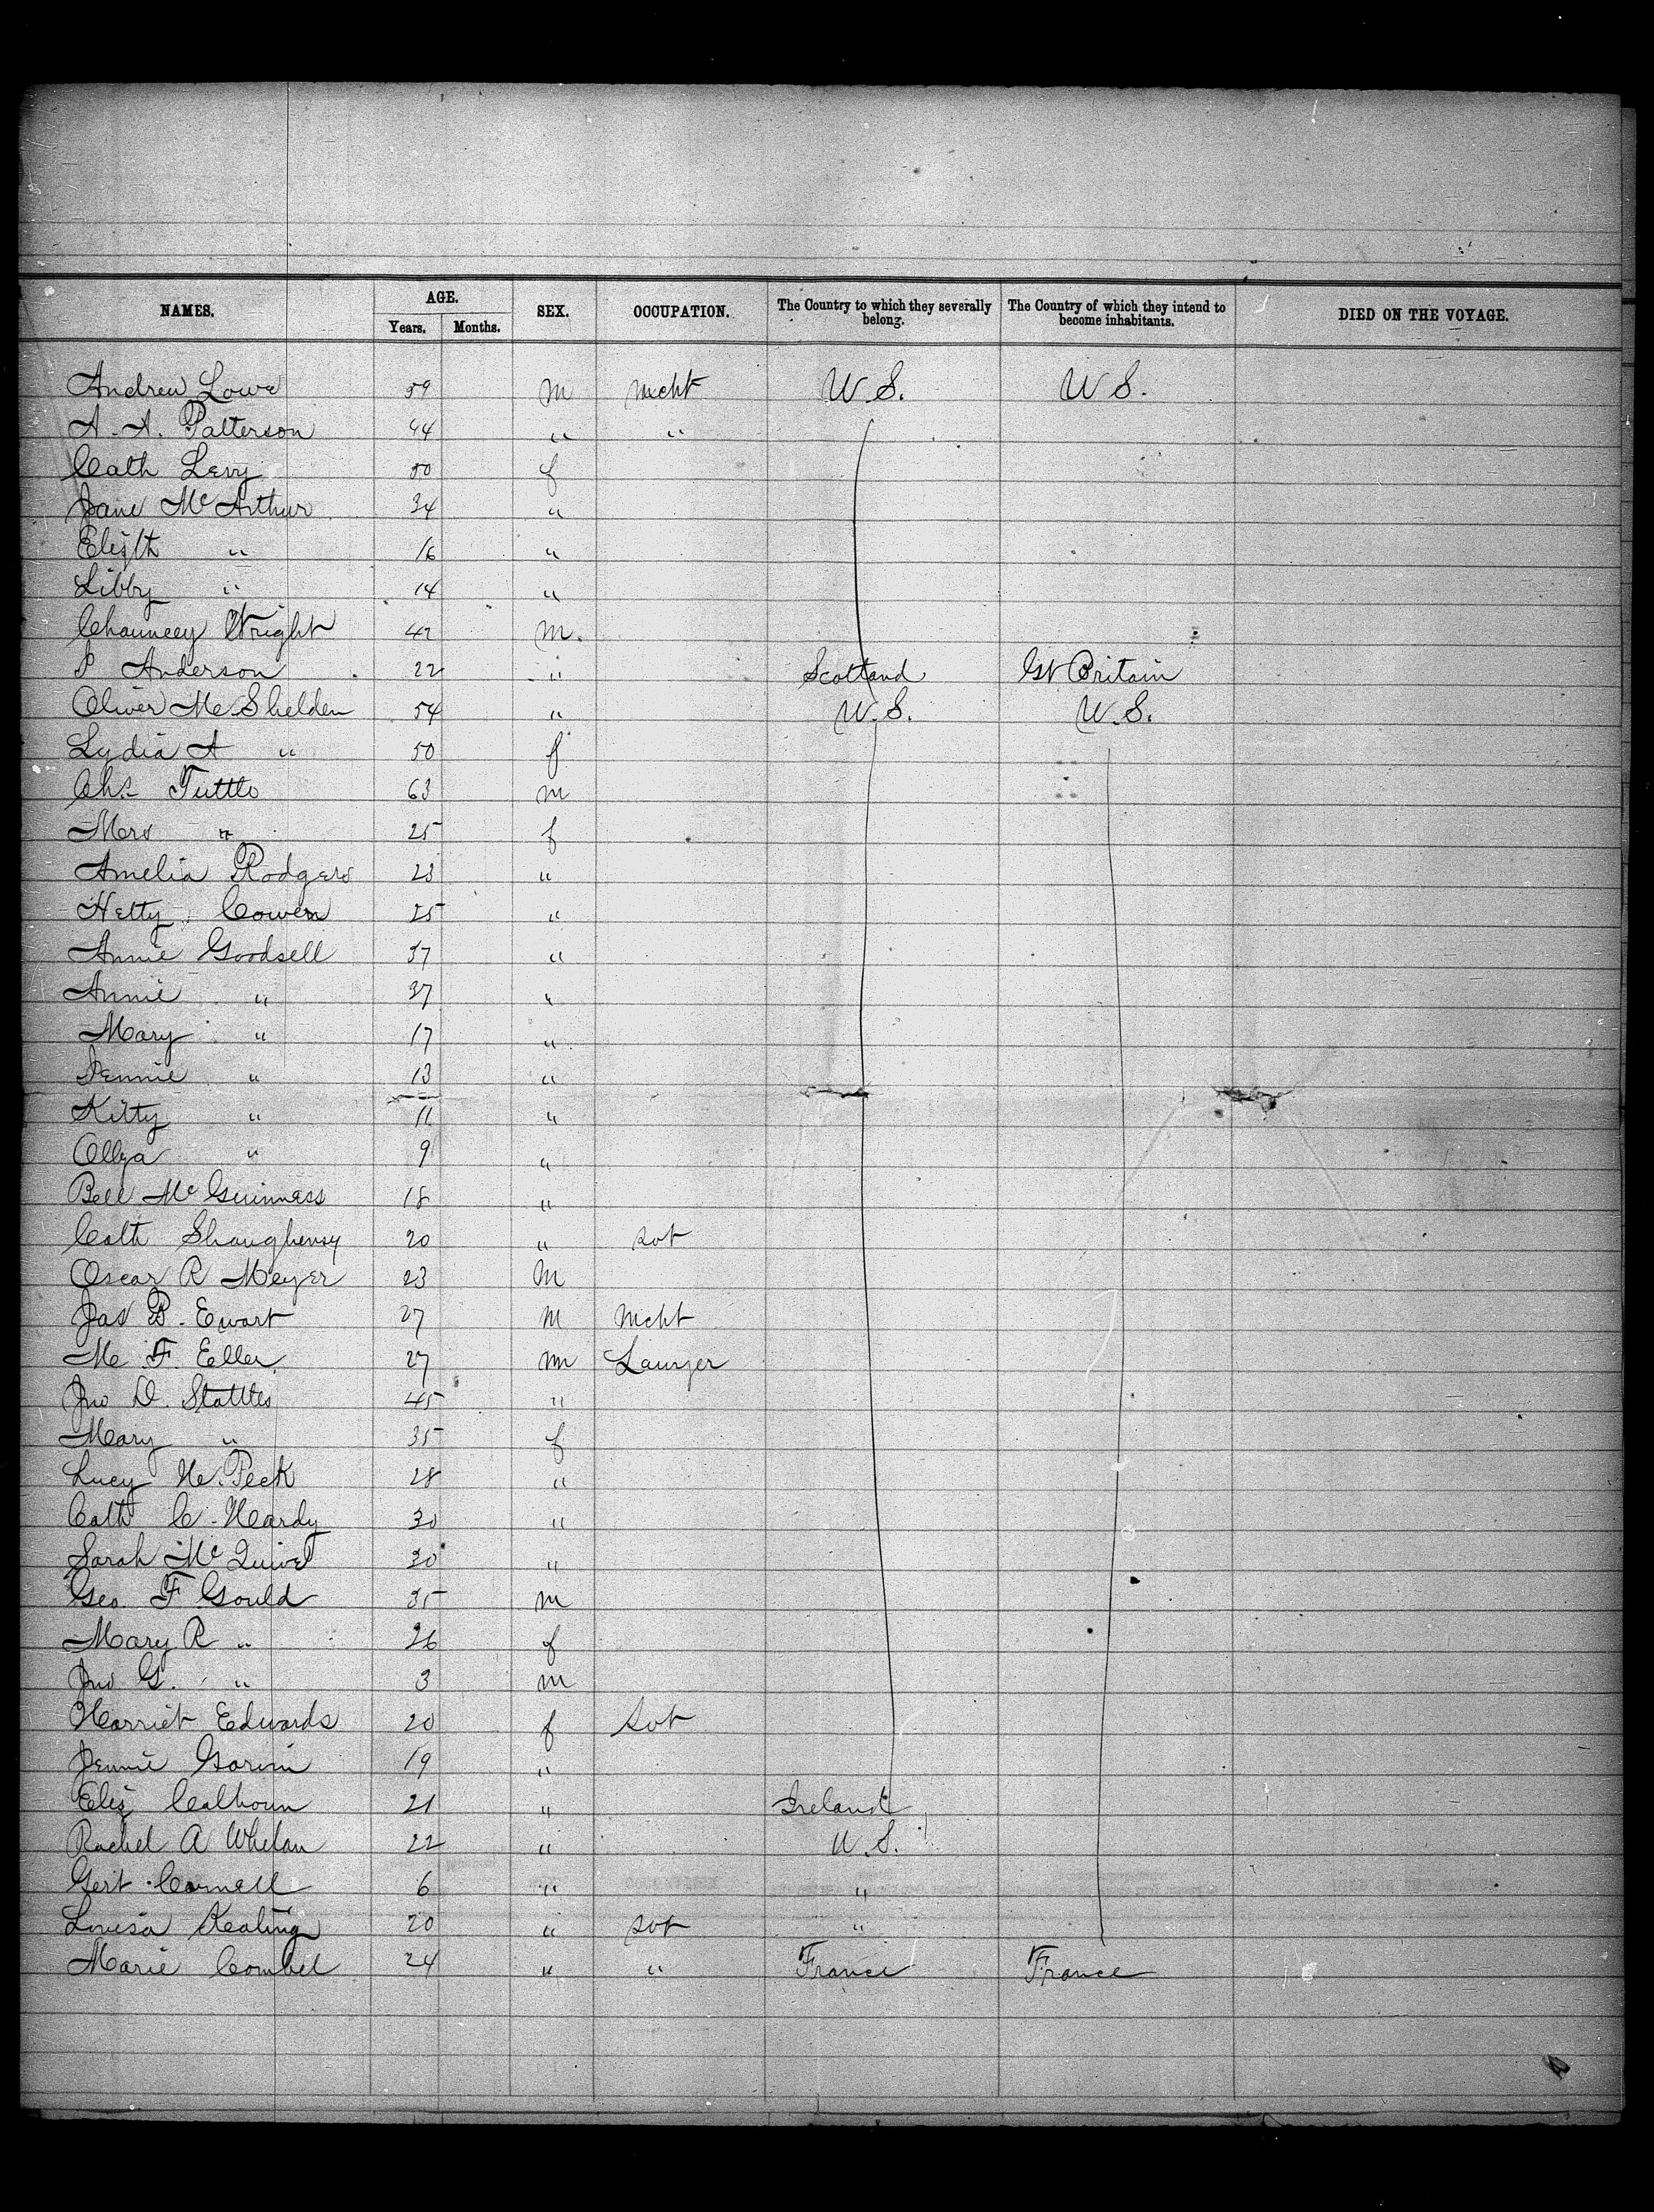 NAMES. AGE. SEX. OCCUPATION. The Country to which they severally belong. The Country of which they intend to become inhabitants. DIED ON THE VOYAGE.
Years. Months.
Andrew Lowe 59 m mcht U.S. U S.
A. A. Patterson 44 " "
Cath Levy 50 f
Jane Mc Arthur 34 "
Elizth " 16 "
Libby " 14 "
Chauncey Wright 42 m.
P Anderson 22 " Scotland Gt Britain
Oliver M Shelden 54 " U.S. U.S.
Lydia A " 50 f
Chs Tuttle 63 m
Mrs " 25 f
Amelia Rodgers 23 "
Hetty Cowen 25 "
Annie Goodsell 37 "
Annie " 37 "
Mary " 17 "
Jennie " 13 "
Kitty " 11 "
Olga " 9 "
Bell Mc Guinness 18 "
Cath Shaughensy 20 " svt
Oscar R Meyer 23 M
Jas B. Ewart 27 M Mcht
M. F. Eller 27 m Lawyer
Jno D. 45 "
Mary " 35 f
Lucy H. Peck 28 "
Cath C. Hardy 30 "
Sarah Mc 30 "
Geo. F Gould 35 m
Mary R " 26 f
Jno G. " 3 m
Harriet Edwards 20 f Svt
Jennie 19 "
Eliz Calhoun 21 " Ireland
Rachel A Whelan 22 " U.S.
Gert Cornell 6 " "
Louisa Keating 20 " svt "
Marie 24 " " France France